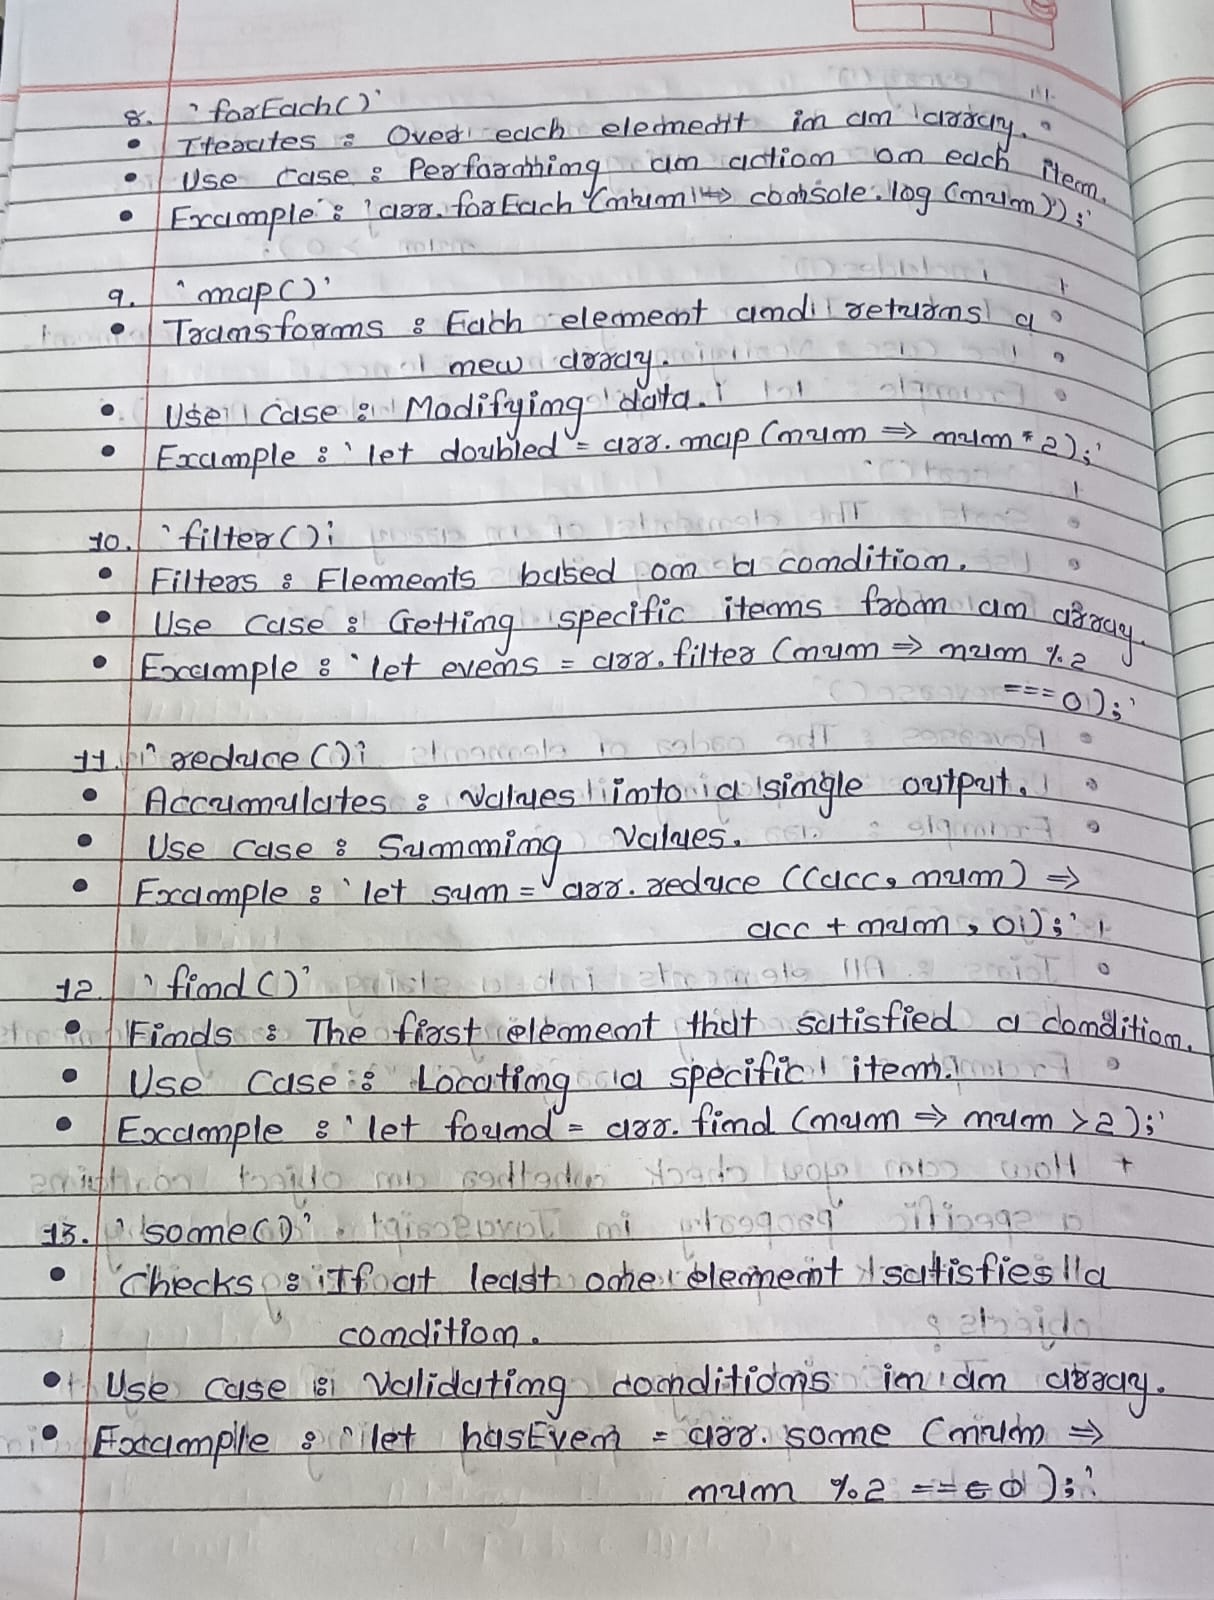 8. `forEach()`
• Iterates : Over each element in an array.
• Use case : Performing an action on each item.
• Example : `arr.forEach(num => console.log(num));`
9. `map()`
• Transforms : Each element and returns a
new array.
• Use case : Modifying data.
• Example : `let doubled = arr.map(num => num * 2);`
10. `filter();
• Filters : Elements based on a condition.
• Use case : Getting specific items from an array.
• Example : `let evens = arr.filter(num => num % 2
=== 0);`
11. `reduce();
• Accumulates : Values into a single output.
• Use case : Summing values.
• Example : `let sum = arr.reduce((acc, num) =>
acc + num, 0);`
12. `find()`
• Finds : The first element that satisfied a condition.
• Use case : Locating a specific item.
• Example : `let found = arr.find(num => num > 2);`
13. `some()`
• Checks : If at least one element satisfies a
condition.
• Use case : Validating conditions in an array.
• Example : `let hasEven = arr.some(num =>
num % 2 === 0);`